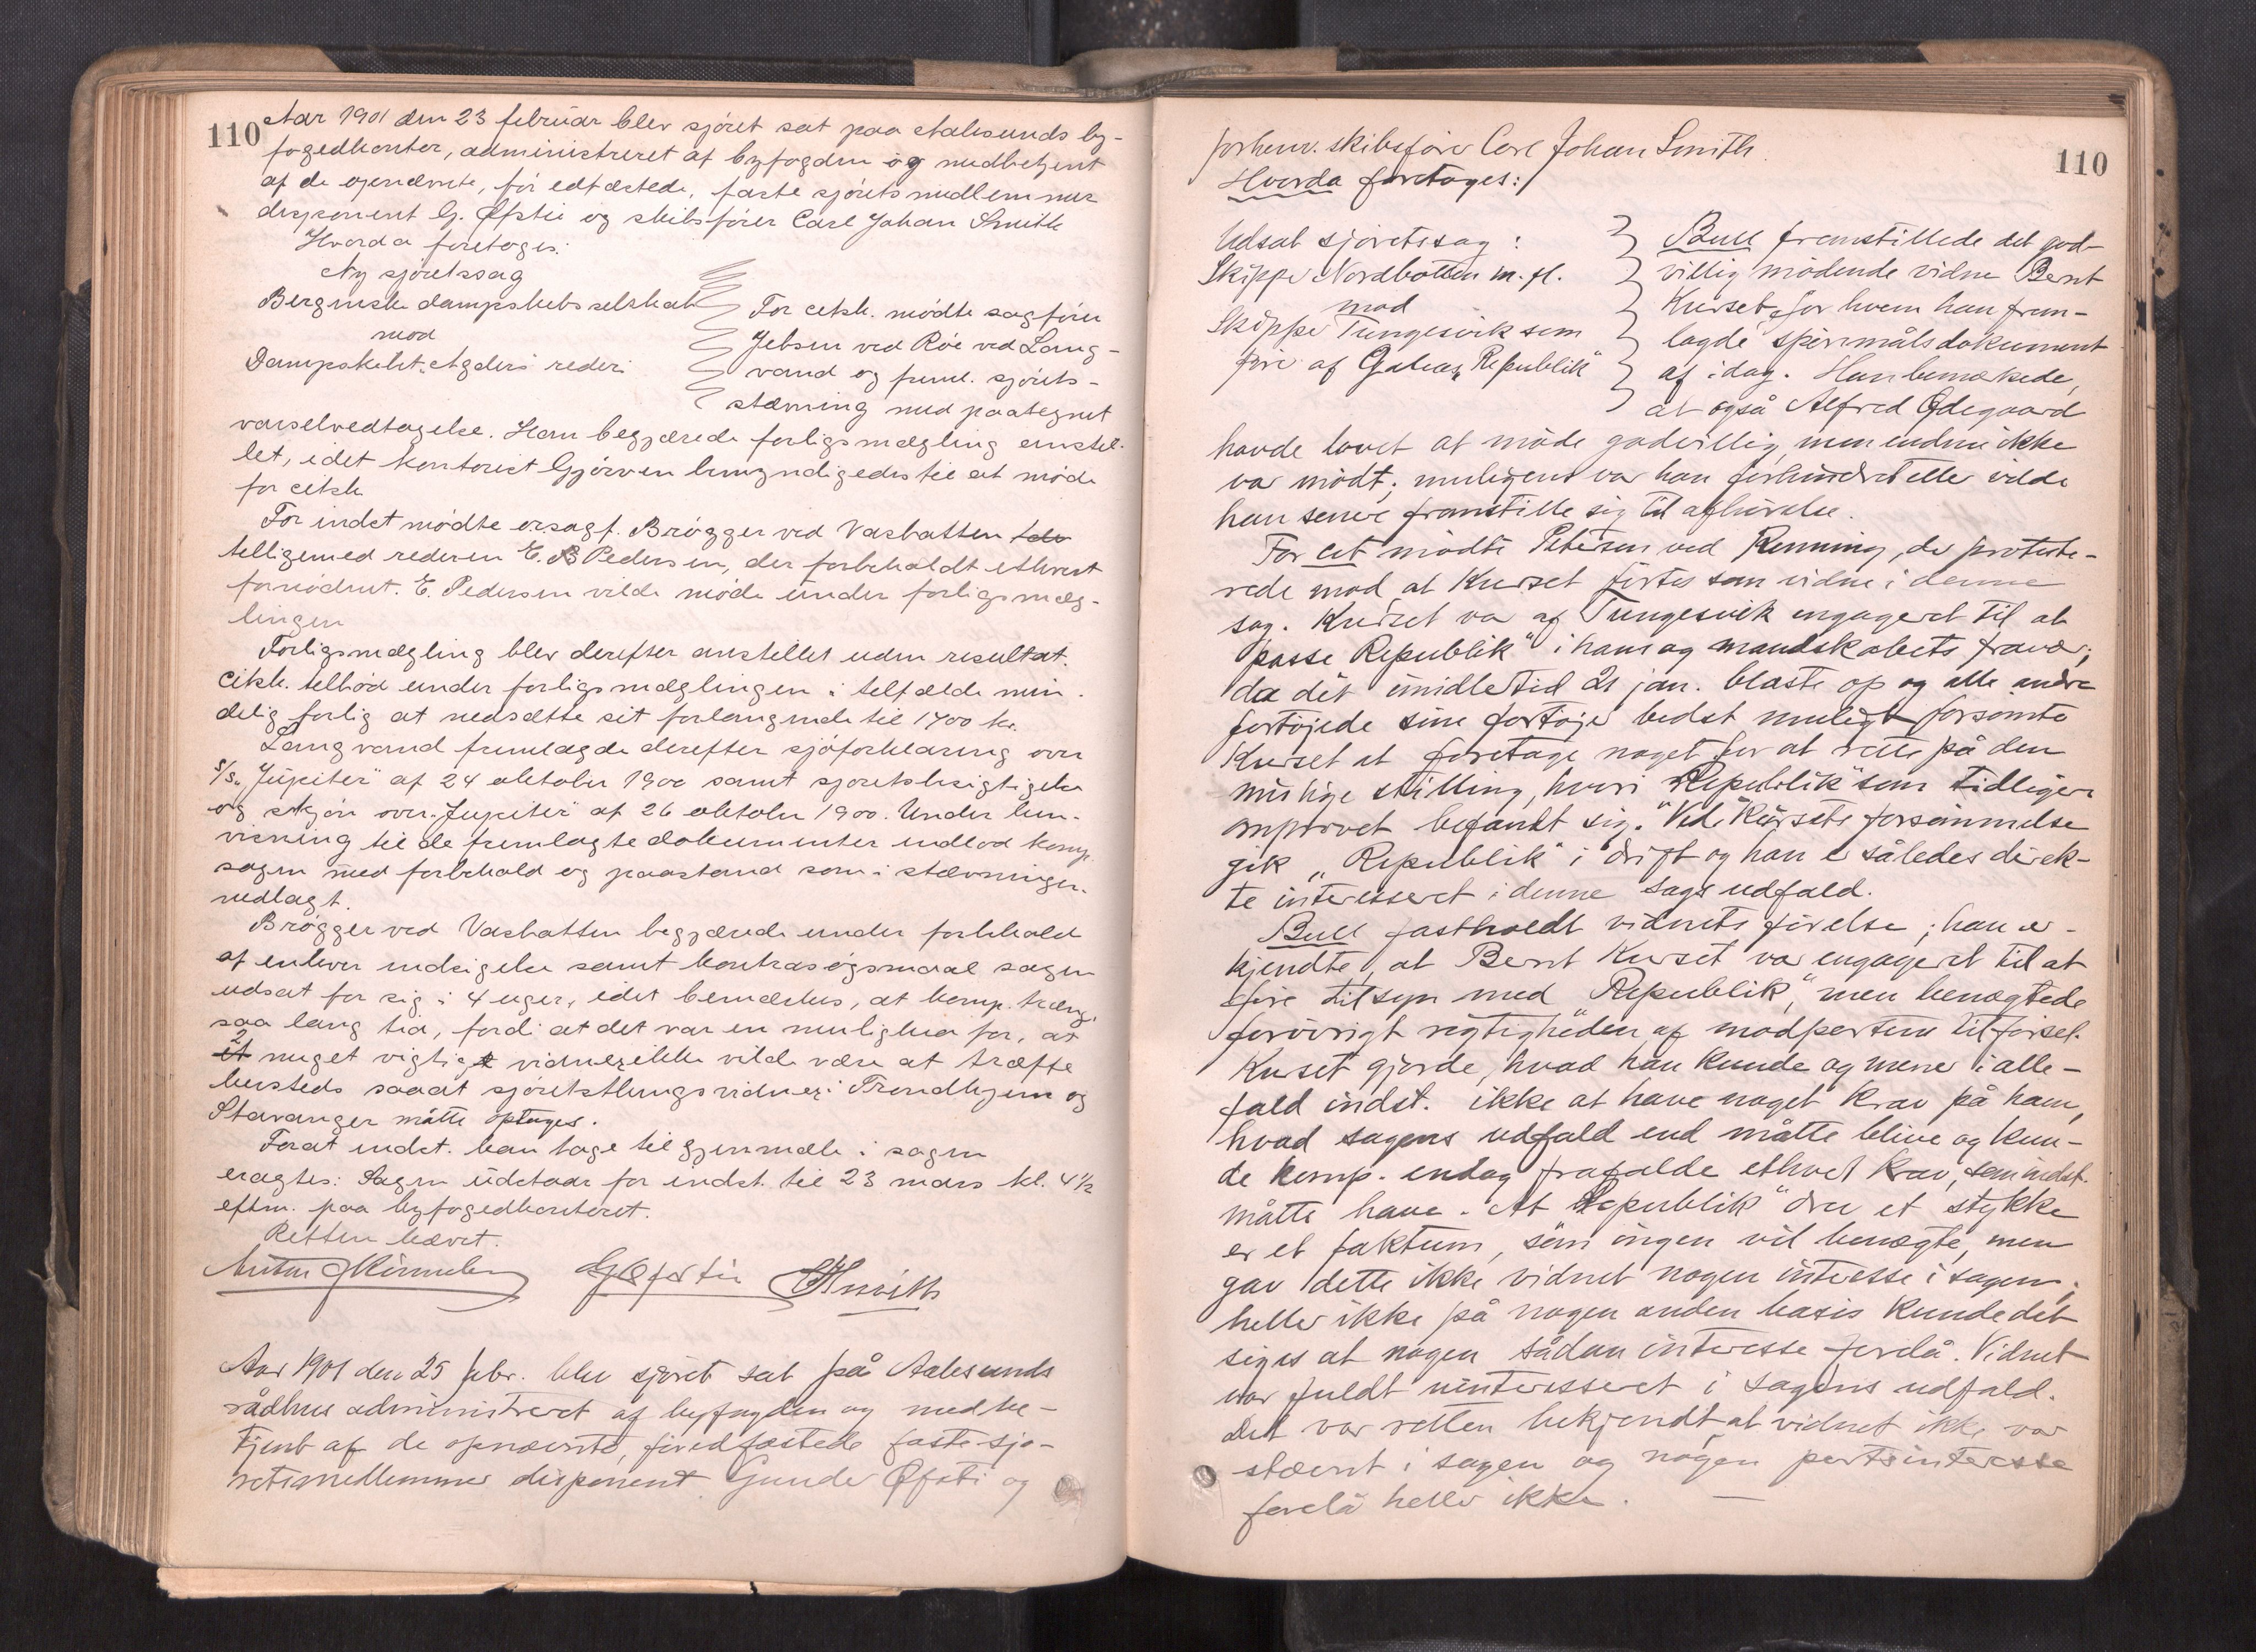 110
Aar 1901 den 23 februar blev sjöret sat paa Aalesunds by-
fogedkontor, administreret af byfogden og medbetjent
af de opnævnte, før edfæstede, faste sjöretsmedlemmer
disponent G. Øfsti og skibsfører Carl Johan Smith
Hvorda foretoges:
Ny sjöretssag
Bergenske dampskibsselskab
mod
Dampskibet "Agders" rederi
For citk. mødte sagfører
Jebsen ved Røe ved Lang-
vand og freml. sjörets-
stævning med paategnet
varselvedtagelse. Han begjærede forligsmægling anstil-
let, idet kontorist Gjørven bemyndigedes til at møde
for citk
For indst mødte orsagf. Brøgger ved Vasbotten
telligemed rederen E. B Pedersen, der forbeholdt ethvert
fornødent. E. Pedersen vilde møde under forligsmæg-
lingen
Forligsmægling blev derefter anstillet uden resultat.
Citk. tilbød under forligsmæglingen i tilfælde min-
delig forlig at nedsætte sit forlangende til 1700 kr.
Langvand fremlagde derefter sjöforklaring over
S/S. "Jupiter" af 24 oktober 1900 samt sjøretsbesigtigelse
og skjøn over "Jupiter" af 26 oktober 1900. Under hen-
visning til de fremlagte dokumenter indlod komp.
sagen med forbehold og paastand som i stævningen
nedlagt.
Brøgger ved Vasbotten begjærede under forbehold
af enhver indsigelse samt kontrasøgsmaal sagen
udsat for sig i 4 uger, idet bemærkes, at komp. træng.
saa lang tid, fordi at det var en mulighed for, at
2 meget vigtige vidner ikke vilde være at træffe
hersteds saaat sjöretstingsvidner i Trondhjem og
Stavanger måtte optages.
Forat indst. kan tage til gjenmæle i sagen
eragtes: Sagen udstaar for indst. til 23 mars kl. 4 1/2
eftm. paa byfogedkontoret.
Retten hævet.
G Øfsti CJSmith
Aar 1901 den 25 febr. blev sjøret sat på Aalesunds
rådhus administreret af byfogden og medbe-
tjent af de opnævnte, før edfæstede faste sjø-
retsmedlemmer disponent Gunder Øfsti og
110
forhenv. skibsfører Carl Johan Smith.
Hvorda foretoges:
Udsat sjøretssag:
Skipper Nordbotten m. fl.
mod
Skipper Tungesvik som
fører af Galeas "Republik"
Bull fremstillede det god-
villig mødende vidne Bernt
Kurset, for hvem han frem-
lagde spørsmålsdokument
af idag. Han bemærkede,
at også Alfred Ødegaard
havde lovet at møde godvillig, men endnu ikke
var mødt; muligens var han forhindret eller vilde
han senere fremstille sig til afhørelse.
For cit mødte Petersen ved Rønning, der proteste-
rede mod at Kurset førtes som vidne i denne
sag. Kurset var af Tungesvik engageret til at
passe "Republik" i hans og mandskabets fravær;
da det imidlertid 21 jan. blæste op og alle andre
fortøjede sine fartøjer bedst muligt forsømte
Kurset at foretage noget for at rette på den
mislige stilling, hvori "Republik" som tidligere
omprovet befandt sig. Ved Kursets forsømmelse
gik "Republik" i drift og han er således direk-
te interesseret i denne sags udfald.
Bull fastholdt vidnets førelse; han er-
kjendte, at Bernt Kurset var engageret til at
føre tilsyn med "Republik", men benægtede
forøvrigt rigtigheden af modpartens tilførsel.
Kurset gjorde, hvad han kunde og mener ialle-
fald indst. ikke at have noget krav på ham,
hvad sagens udfald end måtte blive og kun-
de komp. endog frafalde ethvert krav, som indst.
måtte have. At "Republik" drev et stykke
er et faktum, som ingen vil benægte, men
gav dette ikke vidnet nogen interesse i sagen;
heller ikke på nogen anden basis kunde det
siges at nogen sådan interesse forelå. Vidnet
var fuldt uinteresseret i sagens udfald.
Det var retten bekjendt at vidnet ikke var
stævnt i sagen og nogen partsinteresse
forelå heller ikke. —